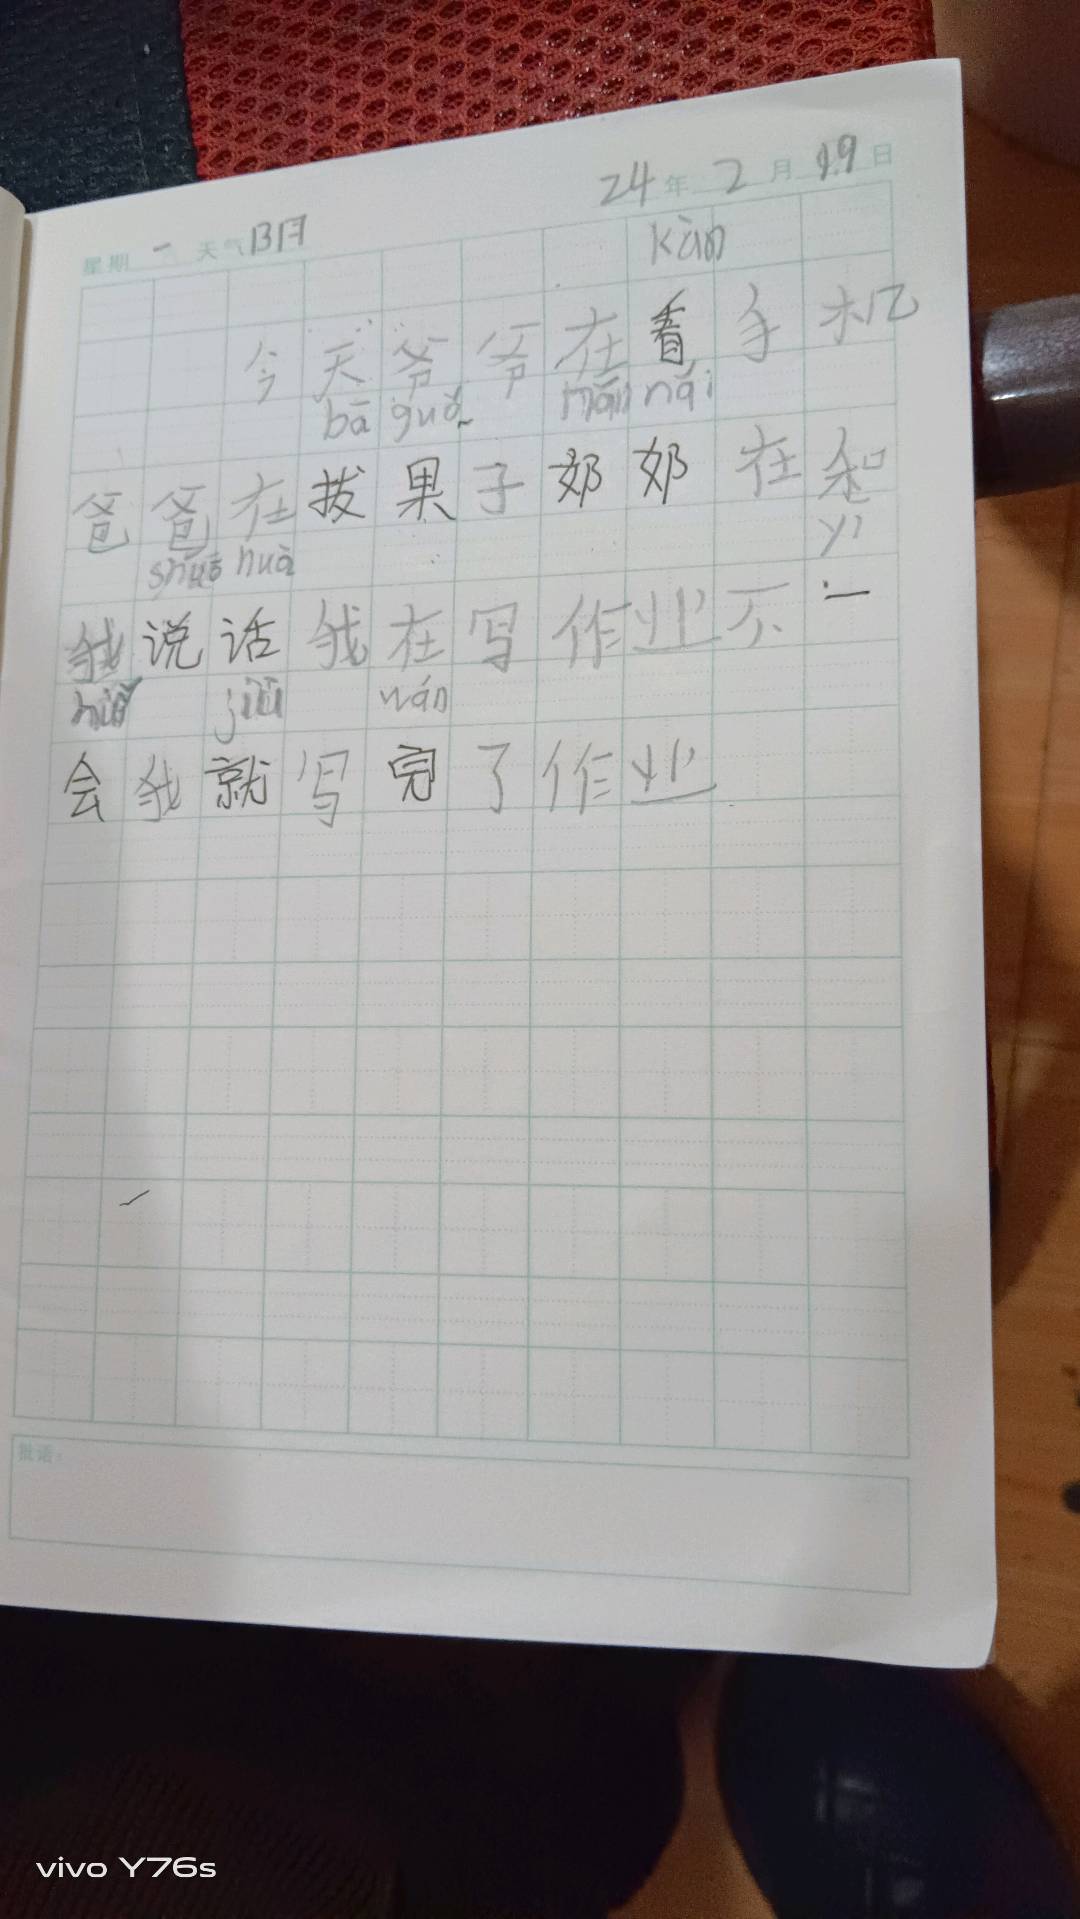 24年2月19日
星期一 天气阴
kàn
今天爷爷在看手机
bā guǒ nǎi nǎi
爸爸在拔果子奶奶在和
shuō huà yì
我说话我在写作业不一
huǐ jiù wán
会我就写完了作业
批语:
vivo Y76s